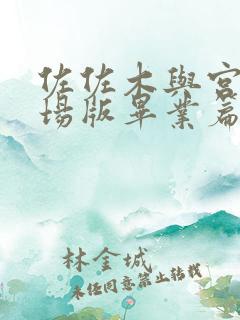 佐佐木與宮
場版畢業篇
林金城
未经同意禁止转载